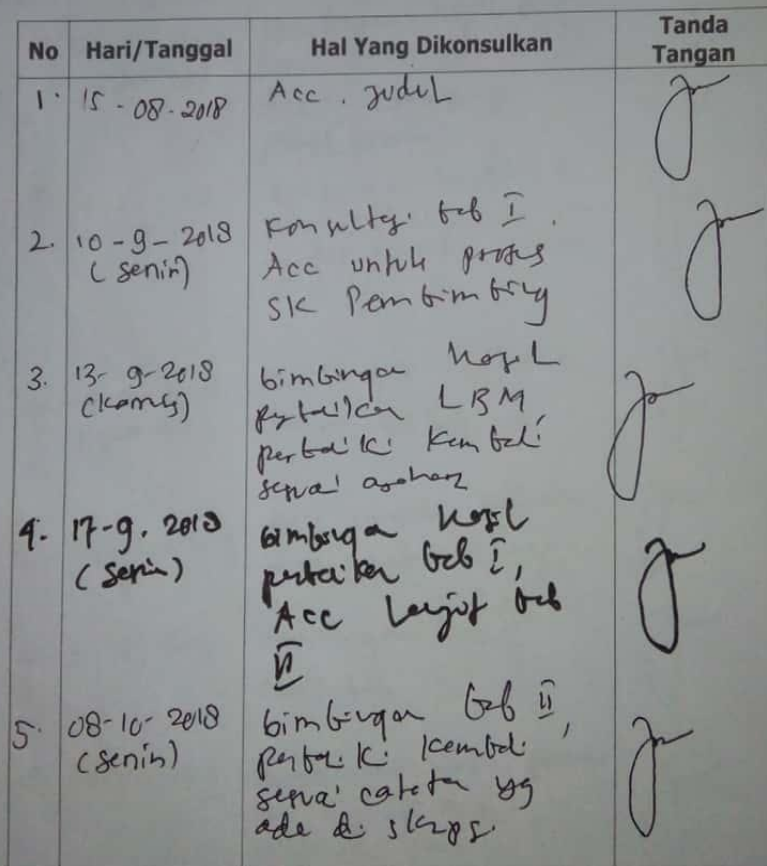 No Hari/Tanggal Hal Yang Dikonsulkan Tanda Tangan
1. 15-08-2018 Acc. judul
2. 10-9-2018 Konsultasi bab I.
(Senin) Acc untuk proses
SK Pembimbing
3. 13-9-2018 bimbingan hasil
(Kamis) perbaikan LBM,
perbaiki kembali
sesuai arahan
4. 17-9-2018 bimbingan hasil
(Senin) perbaikan bab I,
Acc lanjut bab
II
5. 08-10-2018 bimbingan bab II,
(Senin) perbaiki kembali
sesuai catatan yg
ada di skripsi